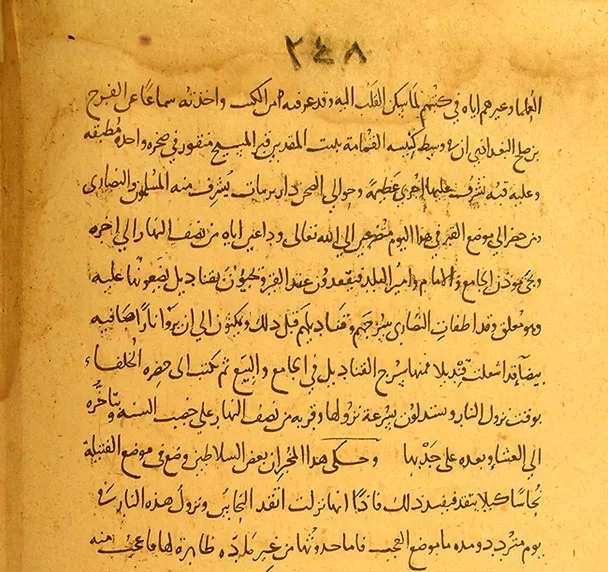 ٢٤٨
العلما وغيرهم اياه في كتبهم لما يسكن القلب اليه وقد عرفته من الكتب واخذته سماعًا عن الفرج
بن صلح البغداني ان في وسط كنيسه القمامة ببيت المقدس قبر المسيح منقور في صخره واحده مطبقه
وعليه قبه تشرف عليها اخرى عظيمة وحوالي الصخر يشرف منه المسلمون والنصارى
ومن حضر الي موضع القبر في هذا اليوم متضرعين الي الله تعالى وداعين اياه من نصف النهار الي اخره
ويجي موذن الجامع والامام وامير البلد فيقعدون عند القبر ويجيون بقناديل يضعونها عليه
وهو مغلق وقد اطفات النصارى سرجهم وقناديلهم قبل ذلك ويمكثون الي ان يروا نارًا صافيه
بيضآ قد اشعلت قنديلا فمنها يسرج القناديل في الجامع والبيع ثم يكتب الى حضره الخلفاء
بوقت نزول النار ويستدلون بسرعة نزولها وقربه من نصف النهار علي خصب السنه وبتاخره
الي العشاء وبعده على جدبها وحكى هذا المخبر ان بعض السلاطين وضع في موضع الفتيلة
نحاسًا كيلا يتقد فيفسد ذلك فاذا انها نزلت اتقد النحاس ونزول هذه النار في
يوم متردد ومده ما موضع العجب فاما حدوثها من غير مادة ظاهرة لها فاعجب منه